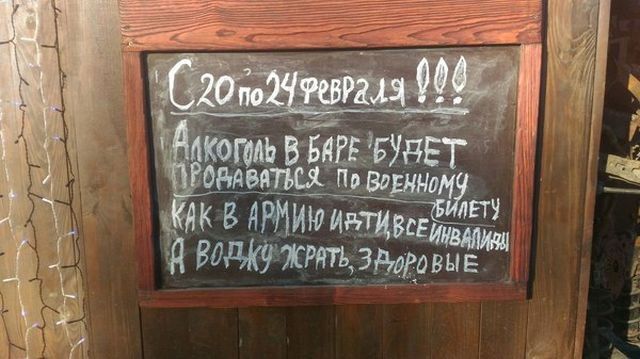 С 20 по 24 февраля !!!
Алкоголь в баре будет
продаваться по военному
билету
как в армию идти, все инвалиды
а воджу жрать, здоровые